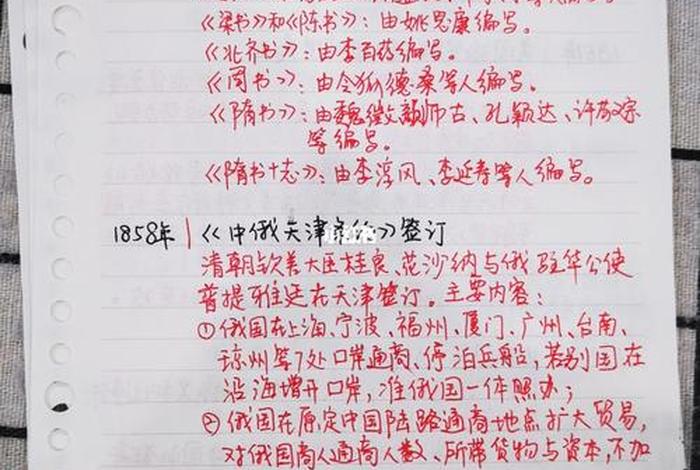 《梁书》和《陈书》：由姚思廉编写。
《北齐书》：由李百药编写。
《周书》：由令狐德棻等人编写。
《隋书》：由魏徵、颜师古、孔颖达、许敬宗
等编写。
《隋书十志》：由李淳风、李延寿等人编写。
1858年 《中俄天津条约》签订
清朝钦差大臣桂良、花沙纳与俄驻华公使
普提雅廷在天津签订。主要内容：
①俄国在上海、宁波、福州、厦门、广州、台南、
琼州等7处口岸通商、停泊兵船，若别国在
沿海增开口岸，准俄国一体照办；
②俄国在原定中国陆路通商地点扩大贸易，
对俄国商人通商人数、所带货物与资本，不加